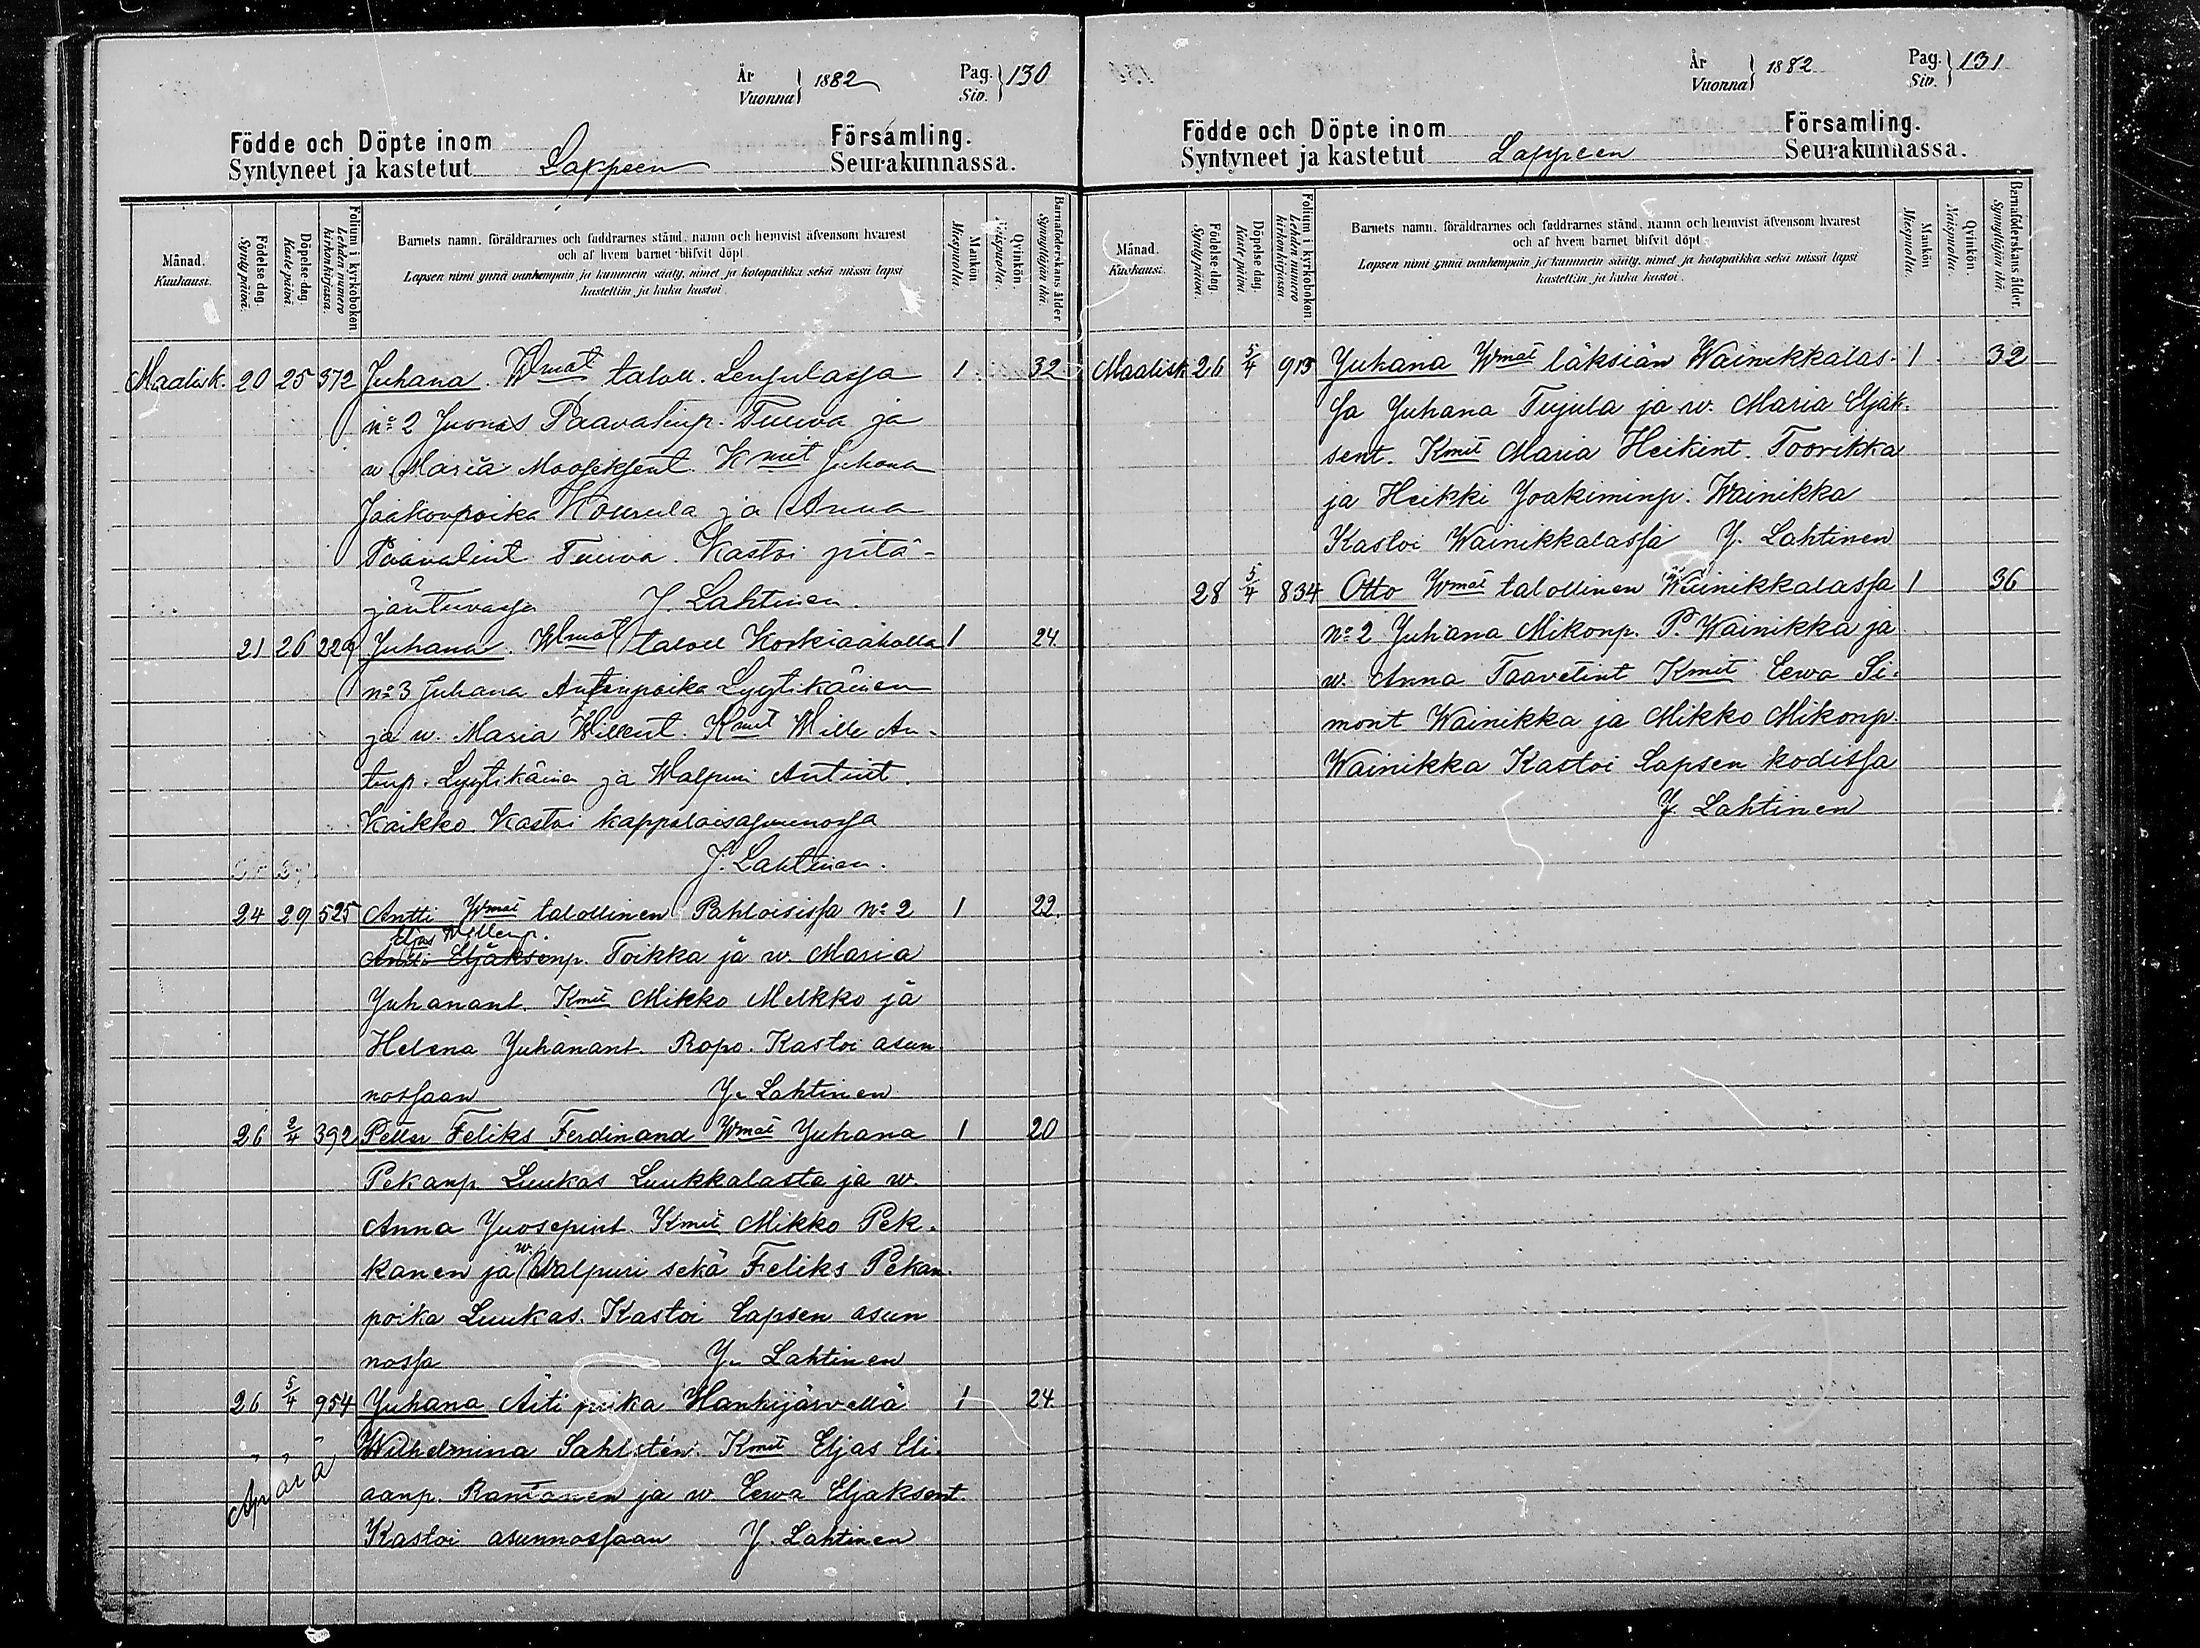 År
Vuonna } 1882
Pag.
Siv. } 130
Födde och Döpte inom Församling.
Syntyneet ja kastetut Lappeen Seurakunnassa.
Månad.
Kuukausi.
Födelse-dag.
Synty päivä.
Döpelse-dag.
Kaste päivä.
Folium i kyrkoboken.
Lehden numero kirkonkirjassa.
Barnets namn, föräldrarnes och faddrarnes stånd, namn och hemvist äfvensom hvarest
och af hvem barnet blifvit döpt.
Lapsen nimi ynnä vanhempain ja kummein sääty, nimet ja kotopaikka sekä missä lapsi
kastettiin ja kuka kastoi.
Mankön.
Miespuolta.
Qvinkön.
Naispuolta.
Barnaföderskans ålder.
Synnyttäjän ikä.
Maalisk. 20 25 372 Juhana. Wmat taloll. Lenjulassa 1 32
no 2 Juonas Paavalinp. Tuuva ja
w Maria Mooseksent. Kmit Juhana
Jaakonpoika Kourula ja Anna
Paavalint Tuuva. Kastoi pitä-
jäntuvassa J. Lahtinen.
21 26 229 Juhana. Wmat taloll Korkiaaholla 1 24.
no 3 Juhana Antinpoika Lyytikäinen
ja w. Maria Willent. Kmit Wille An-
tinp. Lyytikäinen ja Walpuri Antint.
Kaikko Kastoi kappalaisasunnossa
J. Lahtinen.
24 29 525 Antti Wmat talollinen Pahloisissa no 2 1 22.
Eljas Willenp.
Antti Eljäksenp. Toikka ja w. Maria
Yuhanant. Kmit Mikko Melkko ja
Helena Yuhanant. Ropo. Kastoi asun-
nossaan Y. Lahtinen
26 2/4 392 Petter Feliks Ferdinand Wmat Yuhana 1 20
Pekanp. Luukas Luukkalasta ja w.
Anna Yuosepint. Kmit Mikko Pek-
kanen ja w. Walpuri sekä Feliks Pekan-
poika Luukas. Kastoi Lapsen asun
nossa Y. Lahtinen
26 5/4 954 Yuhana Äiti piika Hankijärwellä 1 24.
" " " Wilhelmina Sahlstén. Kmit Eljas Eli-
Apärä
aanp. Rantanen ja w. Eewa Eljaksent.
Kastoi asunnossaan Y. Lahtinen
År
Vuonna } 1882
Pag.
Siv. } 131
Födde och Döpte inom Församling.
Syntyneet ja kastetut Lappeen Seurakunnassa.
Månad.
Kuukausi.
Födelse-dag.
Synty päivä.
Döpelse dag.
Kaste päivä.
Folium i kyrkoboken.
Lehden numero kirkonkirjassa.
Barnets namn, föräldrarnes och faddrarnes stånd, namn och hemvist äfvensom hvarest
och af hvem barnet blifvit döpt.
Lapsen nimi ynnä vanhempain ja kummein sääty, nimet ja kotopaikka sekä missä lapsi
kastettiin ja kuka kastoi.
Mankön
Miespuolta.
Qvinkön.
Naispuolta.
Barnaföderskans ålder.
Synnyttäjän ikä.
Maalisk 26 5/4 915 Yuhana Wmat läksiän Wainikkalas- 1 32
sa Yuhana Tujula ja w. Maria Eljak-
sent. Kmit Maria Heikint. Toorikka
ja Heikki Yoakiminp. Wainikka
Kastoi Wainikkalassa Y. Lahtinen
28 5/4 834 Otto Wmat talollinen Wainikkalassa 1 36
no 2 Yuhana Mikonp. P. Wainikka ja
w. Anna Taavetint Kmit Eewa Si-
mont Wainikka ja Mikko Mikonp.
Wainikka Kastoi Lapsen kodissa
Y. Lahtinen